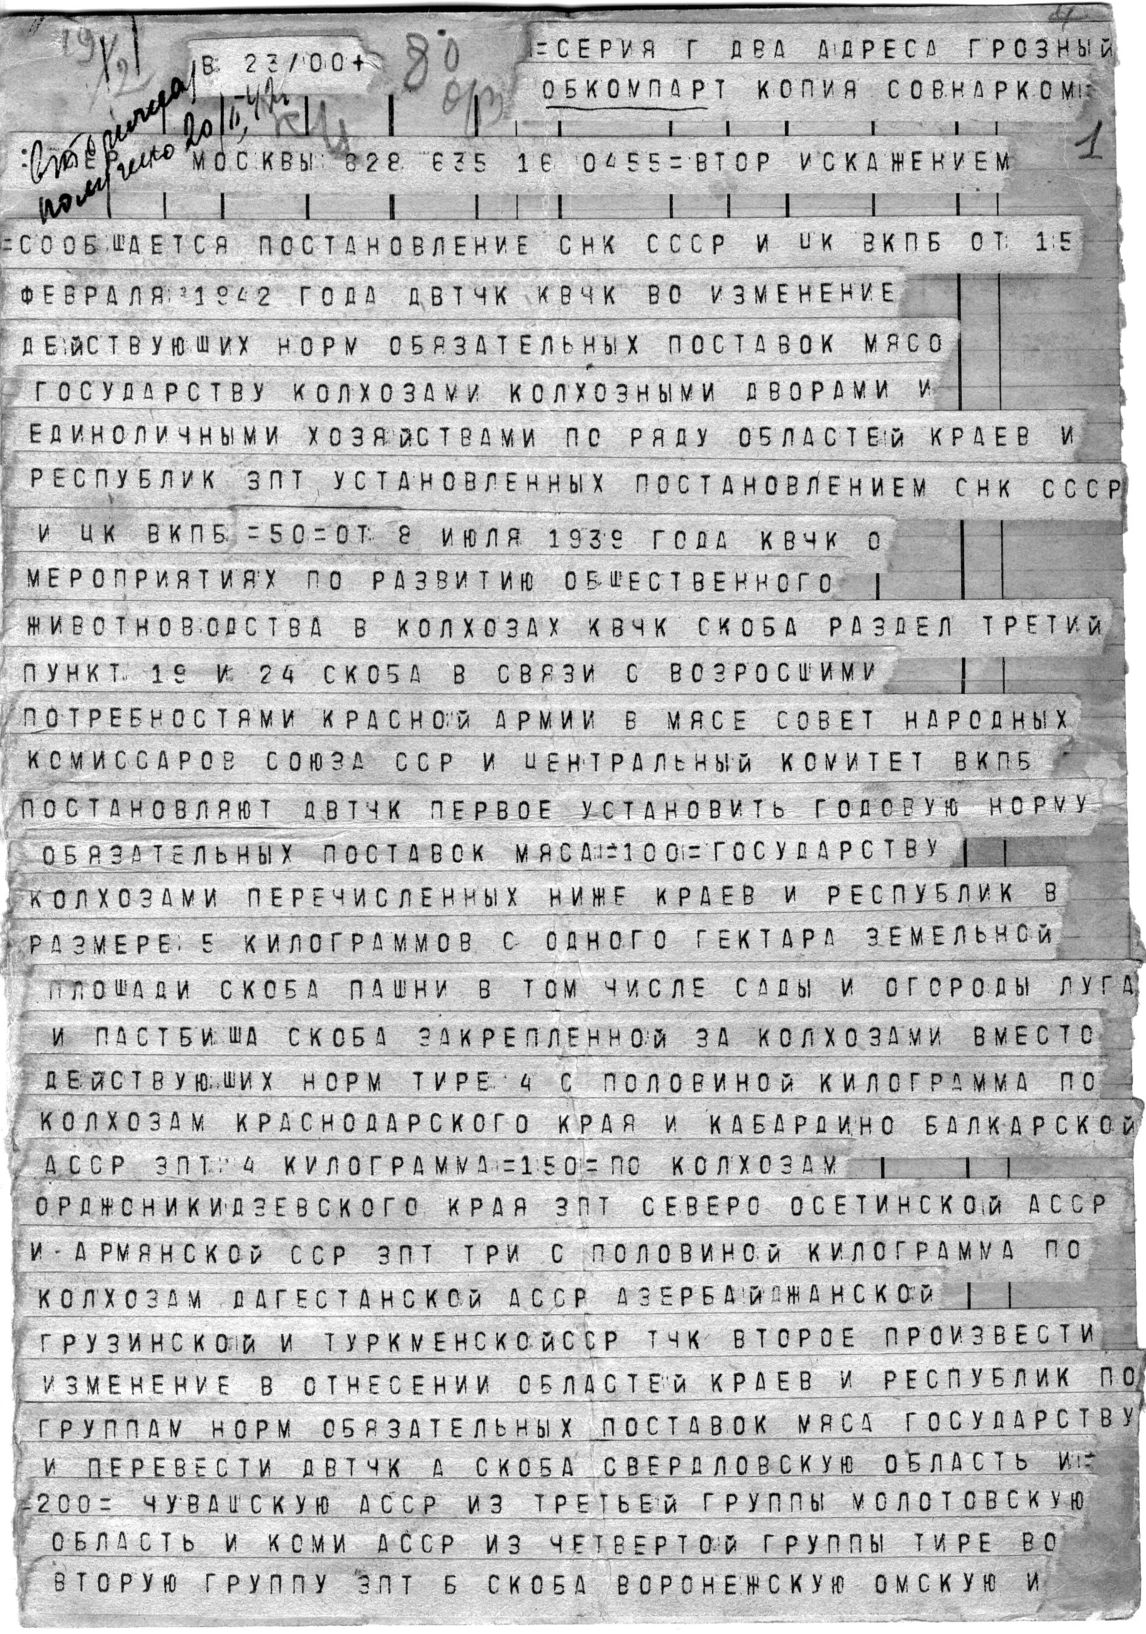 19/XII
В 23/00+
80
=СЕРИЯ Г ДВА АДРЕСА ГРОЗНЫЙ
ОБКОМПАРТ КОПИЯ СОВНАРКОМ=
Вторично
получено 20/II-42г.
1
МОСКВЫ 828 635 16 0455=ВТОР ИСКАЖЕНИЕМ
=СООБШАЕТСЯ ПОСТАНОВЛЕНИЕ СНК СССР И ЦК ВКПБ ОТ 15
ФЕВРАЛЯ 1942 ГОДА ДВТЧК КВЧК ВО ИЗМЕНЕНИЕ
ДЕЙСТВУЮШИХ НОРМ ОБЯЗАТЕЛЬНЫХ ПОСТАВОК МЯСО
ГОСУДАРСТВУ КОЛХОЗАМИ КОЛХОЗНЫМИ ДВОРАМИ И
ЕДИНОЛИЧНЫМИ ХОЗЯЙСТВАМИ ПО РЯДУ ОБЛАСТЕЙ КРАЕВ И
РЕСПУБЛИК ЗПТ УСТАНОВЛЕННЫХ ПОСТАНОВЛЕНИЕМ СНК СССР
И ЦК ВКПБ =50=ОТ 8 ИЮЛЯ 1939 ГОДА КВЧК О
МЕРОПРИЯТИЯХ ПО РАЗВИТИЮ ОБШЕСТВЕННОГО
ЖИВОТНОВОДСТВА В КОЛХОЗАХ КВЧК СКОБА РАЗДЕЛ ТРЕТИЙ
ПУНКТ 19 И 24 СКОБА В СВЯЗИ С ВОЗРОСШИМИ
ПОТРЕБНОСТЯМИ КРАСНОЙ АРМИИ В МЯСЕ СОВЕТ НАРОДНЫХ
КОМИССАРОВ СОЮЗА ССР И ЦЕНТРАЛЬНЫЙ КОМИТЕТ ВКПБ
ПОСТАНОВЛЯЮТ ДВТЧК ПЕРВОЕ УСТАНОВИТЬ ГОДОВУЮ НОРМУ
ОБЯЗАТЕЛЬНЫХ ПОСТАВОК МЯСА=100=ГОСУДАРСТВУ
КОЛХОЗАМИ ПЕРЕЧИСЛЕННЫХ НИЖЕ КРАЕВ И РЕСПУБЛИК В
РАЗМЕРЕ 5 КИЛОГРАММОВ С ОДНОГО ГЕКТАРА ЗЕМЕЛЬНОЙ
ПЛОШАДИ СКОБА ПАШНИ В ТОМ ЧИСЛЕ САДЫ И ОГОРОДЫ ЛУГА
И ПАСТБИША СКОБА ЗАКРЕПЛЕННОЙ ЗА КОЛХОЗАМИ ВМЕСТО
ДЕЙСТВУЮШИХ НОРМ ТИРЕ 4 С ПОЛОВИНОЙ КИЛОГРАММА ПО
КОЛХОЗАМ КРАСНОДАРСКОГО КРАЯ И КАБАРДИНО БАЛКАРСКОЙ
АССР ЗПТ 4 КИЛОГРАММА=150=ПО КОЛХОЗАМ
ОРДЖОНИКИДЗЕВСКОГО КРАЯ ЗПТ СЕВЕРО ОСЕТИНСКОЙ АССР
И АРМЯНСКОЙ ССР ЗПТ ТРИ С ПОЛОВИНОЙ КИЛОГРАММА ПО
КОЛХОЗАМ ДАГЕСТАНСКОЙ АССР АЗЕРБАЙДЖАНСКОЙ
ГРУЗИНСКОЙ И ТУРКМЕНСКОЙССР ТЧК ВТОРОЕ ПРОИЗВЕСТИ
ИЗМЕНЕНИЕ В ОТНЕСЕНИИ ОБЛАСТЕЙ КРАЕВ И РЕСПУБЛИК ПО
ГРУППАМ НОРМ ОБЯЗАТЕЛЬНЫХ ПОСТАВОК МЯСА ГОСУДАРСТВУ
И ПЕРЕВЕСТИ ДВТЧК А СКОБА СВЕРДЛОВСКУЮ ОБЛАСТЬ И=
=200= ЧУВАШСКУЮ АССР ИЗ ТРЕТЬЕЙ ГРУППЫ МОЛОТОВСКУЮ
ОБЛАСТЬ И КОМИ АССР ИЗ ЧЕТВЕРТОЙ ГРУППЫ ТИРЕ ВО
ВТОРУЮ ГРУППУ ЗПТ Б СКОБА ВОРОНЕЖСКУЮ ОМСКУЮ И